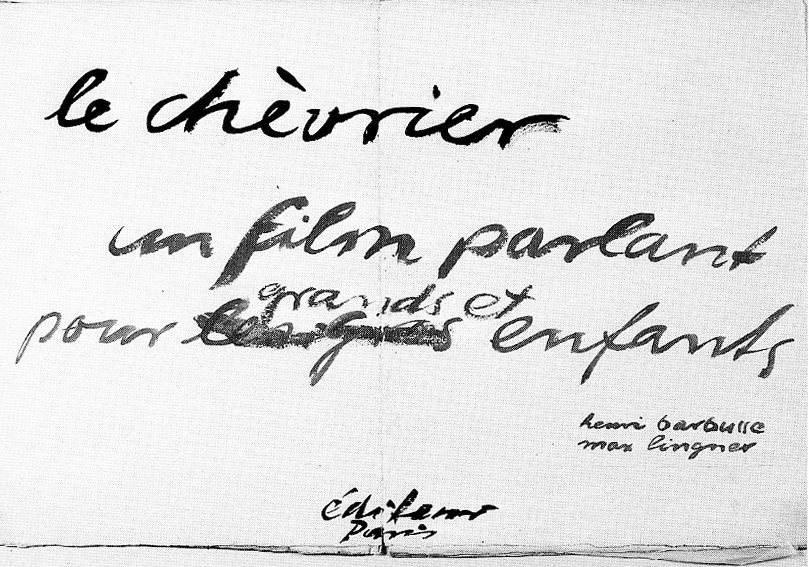 le chèvrier
un film parlant
grands et
pour enfants
henri barbusse
max lingner
éditeur
Paris